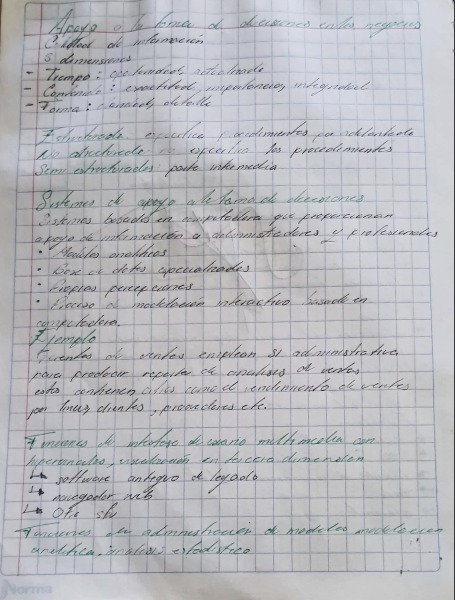 Apoyo a la toma de decisiones en los negocios
Calidad de información
3 dimensiones
- Tiempo: oportunidad, actualizado
- Contenido: exactitud, importancia, integridad
- Forma: claridad, detalle
Estructurada: especifica procedimientos por adelantado
No estructurada: no especifica los procedimientos
Semi estructurados: parte intermedia
Sistemas de apoyo a la toma de decisiones
Sistemas basados en computadora que proporcionan
apoyo de información a administradores y profesionales
• Modelos analíticos
• Base de datos especializados
• Propias percepciones
• Proceso de modelación interactivo basado en
computadora.
Ejemplo
Gerentes de ventas emplean SI administrativa
para producir reportes de analisis de ventas
estos contienen cifras como el rendimiento de ventas
por linea, clientes, provedores etc.
Funciones de interfase de usuario multimedia con
hipervinculos, visualización en tercera dimensión
↳ software antiguo de legado
↳ navegador web
↳ Otro
Funciones de administración de modelos modelación
analitica, analisis estadistico
Norma